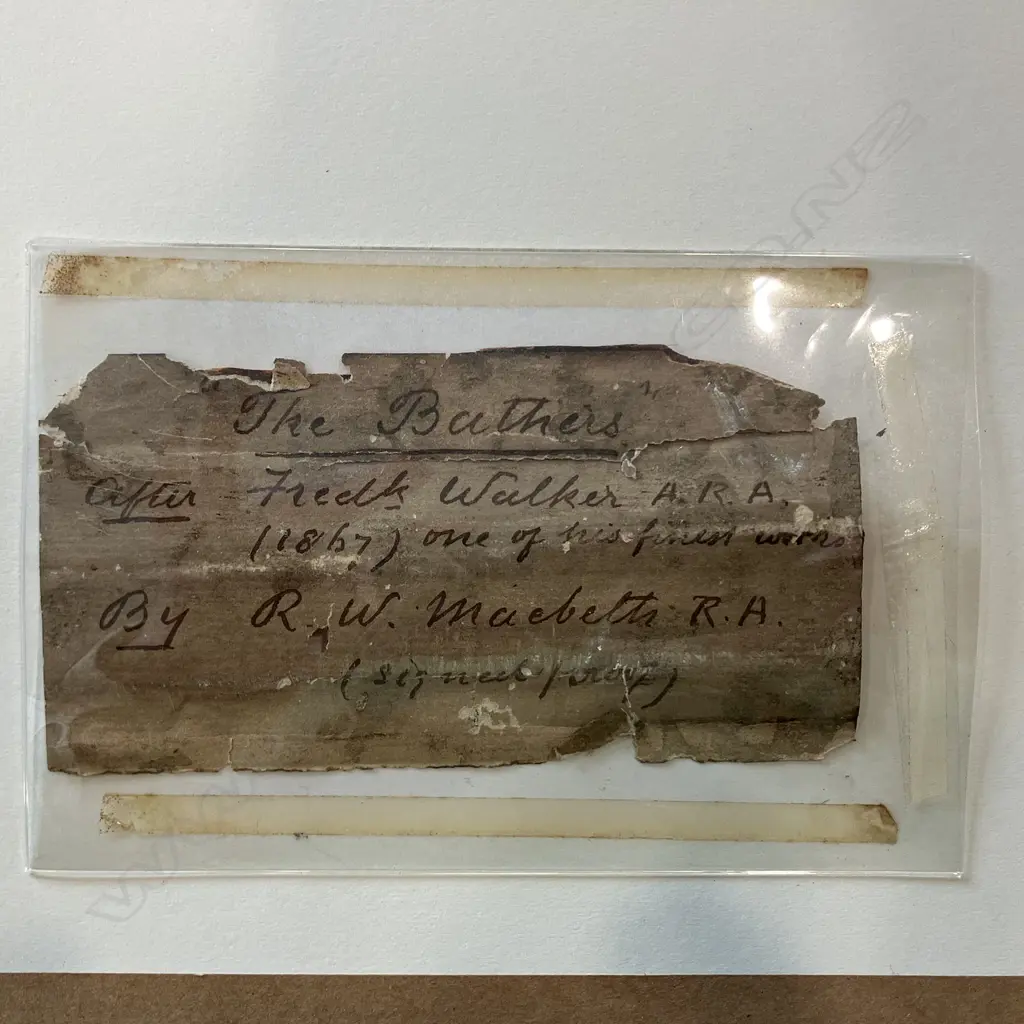 "The Bathers"
After Fredk Walker A.R.A.
(1867) one of his finest works
By R. W. Macbeth R.A.
(signed proof)